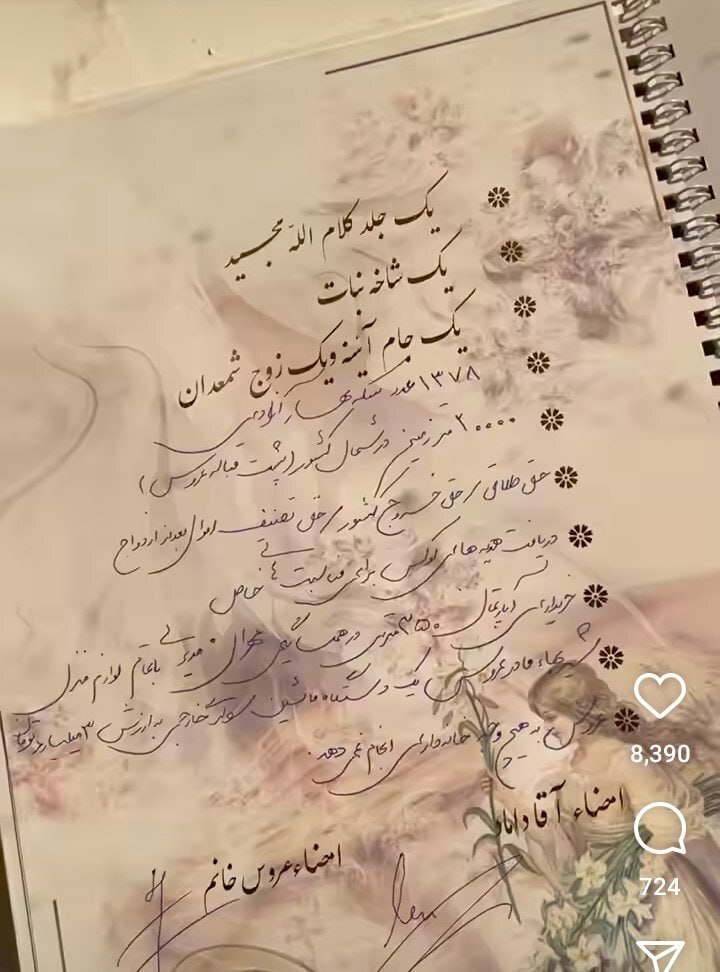 یک جلد کلام الله مجید
یک شاخه نبات
یک جام آینه و یک زوج شمعدان
۱۳۷۸ عدد سکه بهار آزادی
۲۰۰۰۰ متر زمین در شمال کشور (پشت قباله عروس)
حق طلاق / حق خروج کشور / حق تصنیف اموال بعد از ازدواج
دریافت هدیه های لوکس برای مناسبت های خاص
خریداری آپارتمان ۳۵۰ متری در تهران با تمام لوازم منزل
شیربهاء مادر عروس یک دستگاه ماشین سواری خارجی به ارزش ۳ میلیارد تومان
عروس به هیچ وجه خانه داری انجام نمی دهد.
امضاء آقا داماد
امضاء عروس خانم
8,390
724